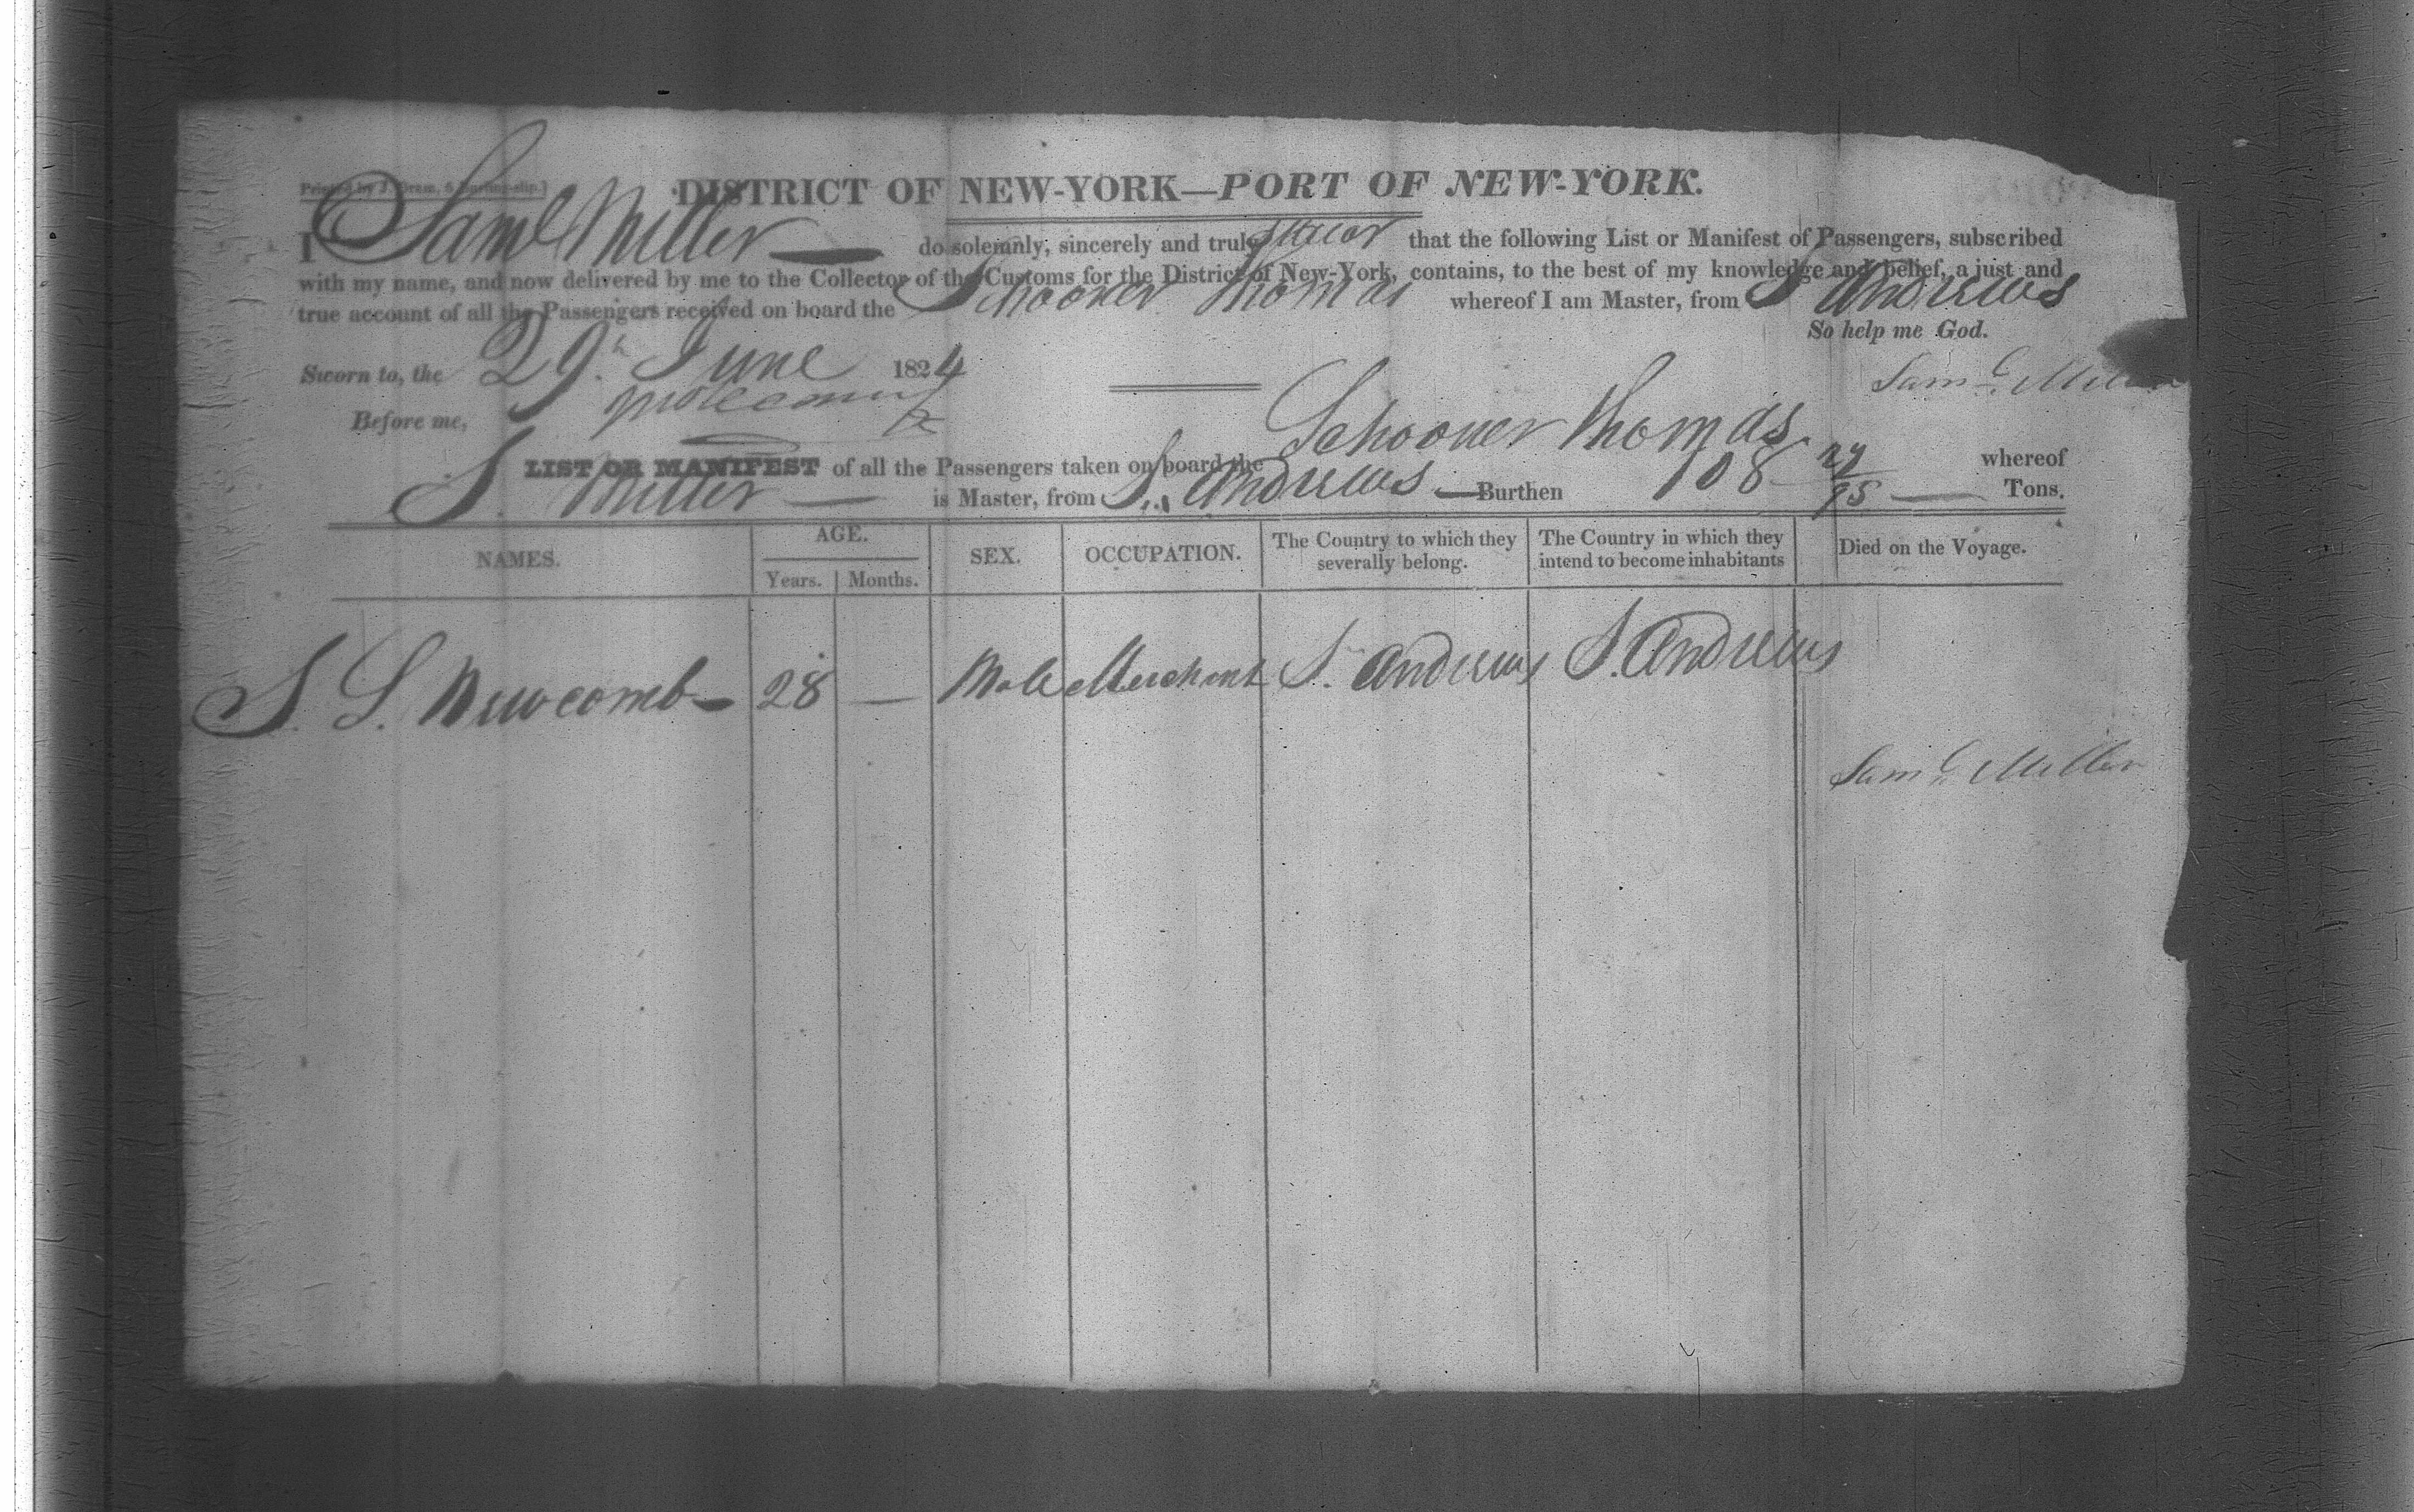 DISTRICT OF NEW-YORK—PORT OF NEW-YORK.
I Saml Miller — do solemnly, sincerely and truly swear that the following List or Manifest of Passengers, subscribed
with my name, and now delivered by me to the Collector of the Customs for the District of New-York, contains, to the best of my knowledge and belief, a just and
true account of all the Passengers received on board the Schooner Thomas whereof I am Master, from St Andrews
So help me God.
Sworn to, the 29th June 1824
Saml. Miller
Before me,
LIST OR MANIFEST of all the Passengers taken on board the Schooner Thomas whereof
S. Miller — is Master, from St. Andrews — Burthen 108 /95 — Tons.
NAMES. AGE. SEX. OCCUPATION. The Country to which they severally belong. The Country in which they intend to become inhabitants Died on the Voyage.
Years. Months.
S. S. Newcomb — 28 — Male Merchant St. Andrews St. Andrews
Saml. Miller